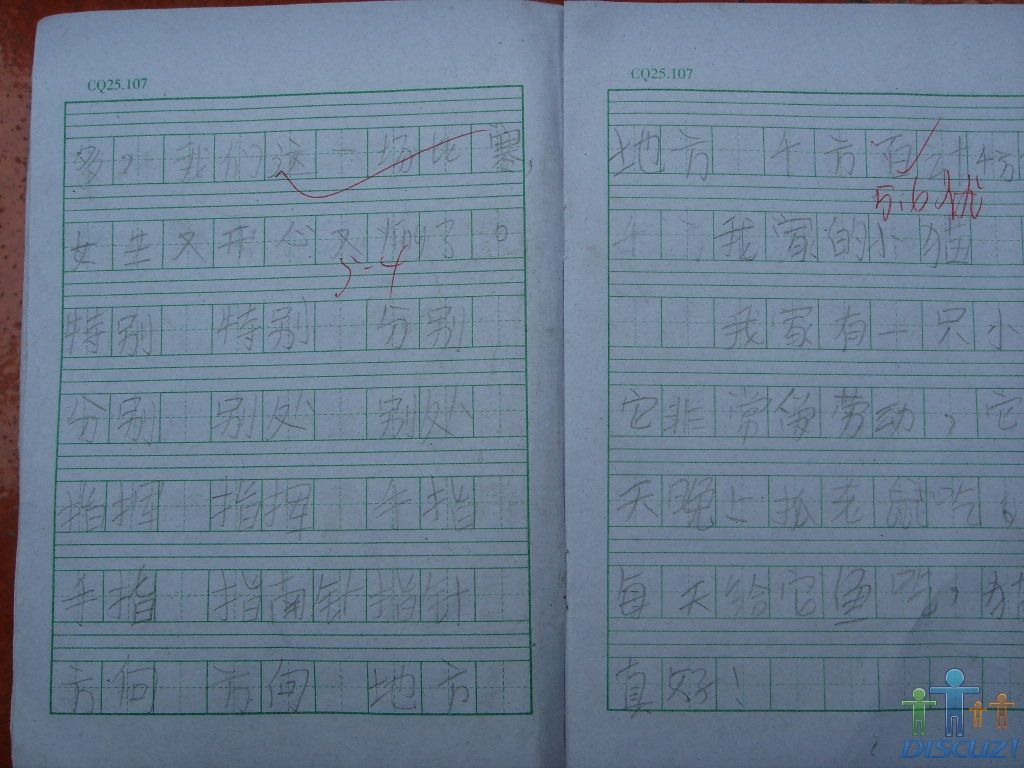 CQ25.107
多,我们这一场比赛,
女生又开心又了。
5-4
特别 特别 分别
分别 别处 别处
指挥 指挥 手指
手指 指南针 指针
方向 方向 地方
CQ25.107
地方 千方百计 千方
5.6 优
我家的小猫
我家有一只小
它非常劳动,它
天晚上抓老鼠吃。
每天给它鱼吃,猫
真好!
DISCUZ!